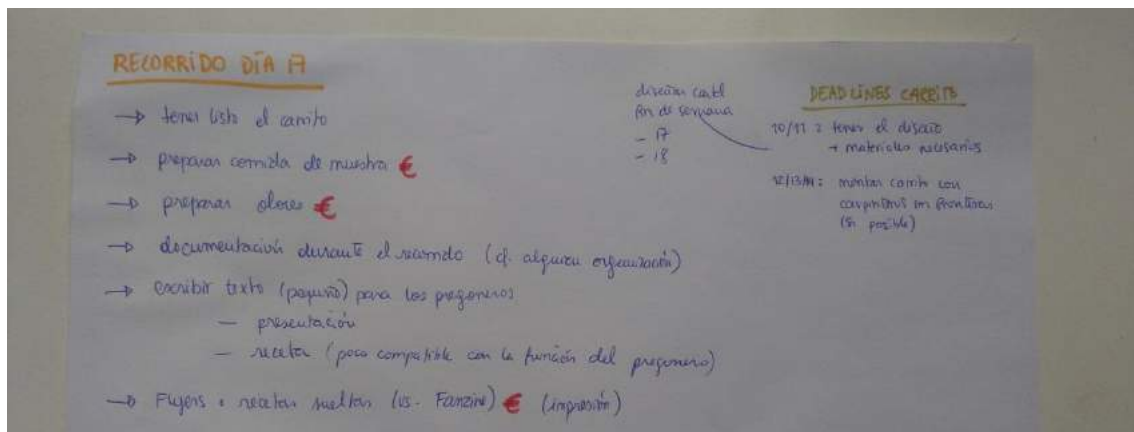 RECORRIDO DÍA 17
→ tener listo el carrito
→ preparar comida de muestra €
→ preparar olores €
→ documentación durante el recorrido (cf. alguien organización)
→ escribir texto (pequeño) para los pregoneros
— presentación
— recetas (poco compatible con la función del pregonero)
→ Flyers + recetas sueltas (vs. Fanzine) € (impresión)
diseñar cartel
fin de semana
- 17
- 18
DEADLINES CARRITO
10/11 : tener el diseño
+ materiales necesarios
12/13/14 : montar carrito con
carpinteros sin fronteras
(si posible)